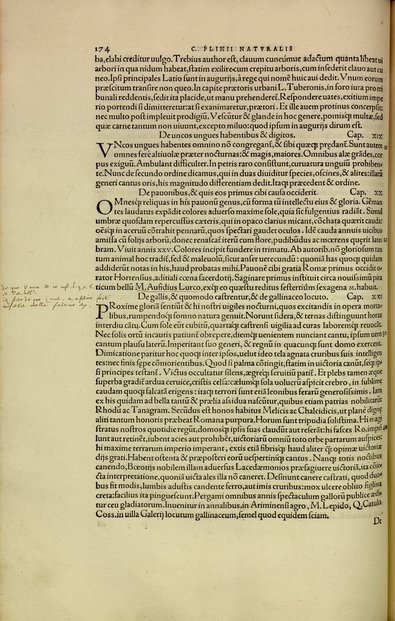 174 C. PLINII NATVRALIS
ba, elabi creditur uulgo. Trebius author est, clauum cuneumue adactum quanta libeat ui
arbori in qua nidum habeat, statim exilire cum crepitu arboris, cum insederit clauo aut cu
neo. Ipsi principales Latio sunt in augurijs, à rege qui nomē huic aui dedit. Vnum eorum
præscitum transire non queo. In capite prætoris urbani L. Tuberonis, in foro iura pro tri
bunali reddentis, sedit ita placide, ut manu prehenderet̃. Respondere uates, exitium impe
rio portendi si dimitteretur: at si exanimaretur, prætori. Et ille auem protinus concerpsit:
nec multo post impleuit prodigiū. Vescūtur & glande in hoc genere, pomisq́ multæ, sed
quæ carne tantum non uiuunt, excepto miluo: quod ipsum in augurijs dirum est.
De uncos ungues habentibus & digitos. Cap. XIX
VNcos ungues habentes omnino nō congregant̃, & sibi quæcq; prædant̃. Sunt autem
omnes fere altiuolæ præter nocturnas: & magis, maiores. Omnibus alæ grādes, cor
pus exiguū. Ambulant difficulter. In petris raro consistunt, curuatura unguiū prohiben
te. Nunc de secundo ordine dicamus, qui in duas diuiditur species, oscines, & alites: illarū
generi cantus oris, his magnitudo differentiam dedit. Itaq; præcedent & ordine.
De pauonibus, & quis eos primus cibi causa occiderit. Cap. XX
OMnesq́; reliquas in his pauonū genus, cū forma tū intellectu eius & gloria. Gēman
tes laudatus expādit colores aduerso maxime sole, quia sic fulgentius radiāt. Simul
umbræ quosdam repercussus cæteris, qui in opaco clarius micant, cōchata quærit cauda:
oēsq; in aceruū cōtrahit pennarū, quos spectari gaudet oculos. Idē cauda annuis uicibus
amissa cū folijs arborū, donec renascat̃ iterū cum flore, pudibūdus ac mœrens quærit late
bram. Viuit annis xxv. Colores incipit fundere in trimatu. Ab autorib. nō gloriosum tan
tum animal hoc tradit̃, sed & maleuolū, sicut anser uerecundū: quoniā has quoq; quidam
addiderūt notas in his, haud probatas mihi. Pauonē cibi gratia Romæ primus occidit o=
rator Hortensius, aditiali cœna sacerdotij. Saginare primus instituit circa nouissimū pira
ticum bellū M. Aufidius Lurco, exq́; eo quæstu reditus sestertiūm sexagena īs. habuit.
De gallis, & quomodo castrentur, & de gallinaceo locuto. Cap. XXI
PRoxime gloriā sentiūt & hi nostri uigiles nocturni, quos excitandis in opera mor=
talibus, rumpendoq́; somno natura genuit. Norunt sidera, & ternas distinguunt horas
interdiu cātu. Cum sole eūt cubitū, quartaq; castrensi uigilia ad curas laboremq́; reuocāt.
Nec solis ortū incautis patiunt̃ obrepere, diemq́; uenientem nunciant cantu, ipsum uero
cantum plausu laterū. Imperitant suo generi, & regnū in quacunq; sunt domo exercent.
Dimicatione paritur hoc quoq; inter ipsos, uelut ideo tela agnata cruribus suis intelligen
tes: nec finis sæpe cōmorientibus. Quod si palma cōtingit, statim in uictoria canūt, seq; ip
si principes testant̃. Victus occultatur silens, ægreq́; seruitiū patit̃. Et plebs tamen æque
superba gradit̃ ardua ceruice, cristis celsa: cœlumq́; sola uolucrū aspicit crebro, in sublime
caudam quoq; falcatā erigens: itaq; terrori sunt etiā leonibus ferarū generosissimis. Iam
ex his quidam ad bella tantū & prælia assidua nascūtur, quibus etiam patrias nobilitarūt
Rhodū ac Tanagram. Secūdus est honos habitus Melicis ac Chalcidicis, ut plane dignę
aliti tantum honoris præbeat Romana purpura. Horum sunt tripudia solistima. Hi magi
stratus nostros quotidie regūt, domosq́; ipsis suas claudūt aut reserāt. Hi fasces Ro. impel
lunt aut retinēt, iubent acies aut prohibēt, uictoriarū omniū toto orbe partarum auspices:
hi maxime terrarum imperio imperant, extis etiā fibrisq́; haud aliter q̄ optimæ uictimæ
dijs grati. Habent ostenta & præposteri eorū uespertiniq; cantus. Nanq; totis noctibus
canendo, Bœotijs nobilem illam aduersus Lacedæmonios præsagiuere uictoriā, ita conie=
cta interpretatione, quoniā uicta ales illa nō caneret. Desinunt canere castrati, quod duo
bus fit modis, lumbis adustis candente ferro, aut imis cruribus: mox ulcere oblito figlina
creta: facilius ita pinguescunt. Pergami omnibus annis spectaculum gallorū publice ædi=
tur ceu gladiatorum. Inuenitur in annalibus, in Ariminensi agro, M. Lepido, Q. Catulo
Coss. in uilla Galerij locutum gallinaceum, semel quod equidem sciam.
De